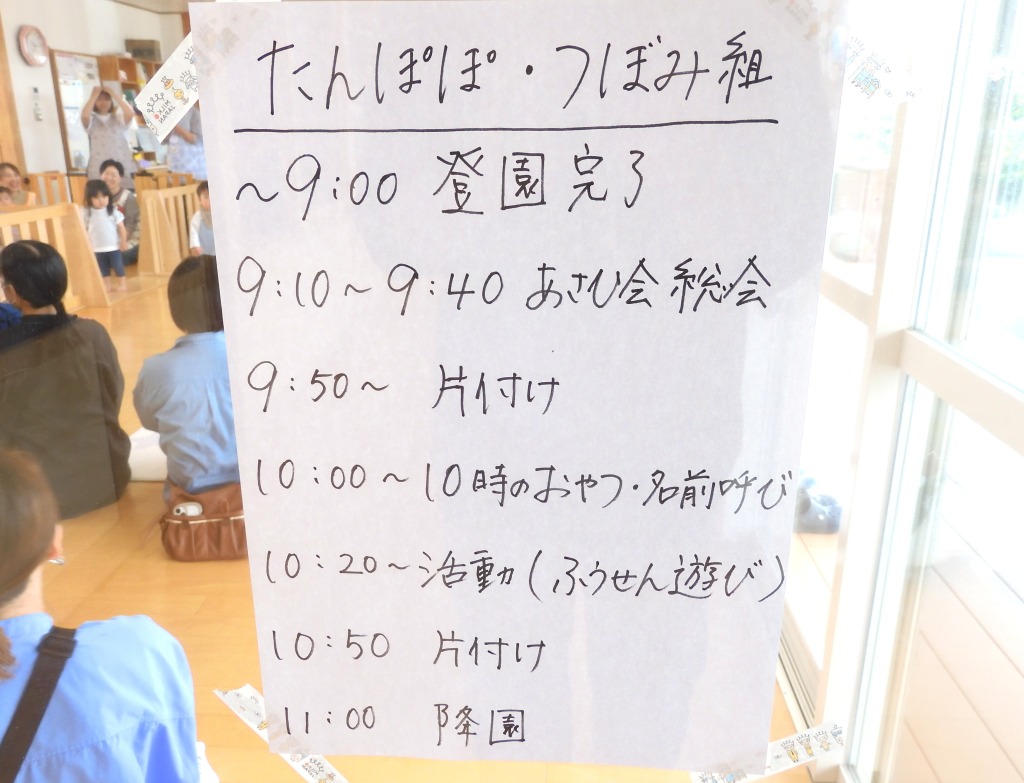 たんぽぽ・つぼみ組
～9:00 登園完了
9:10～9:40 あさひ会 総会
9:50～ 片付け
10:00～10時のおやつ・名前呼び
10:20～活動(ふうせん遊び)
10:50 片付け
11:00 降園